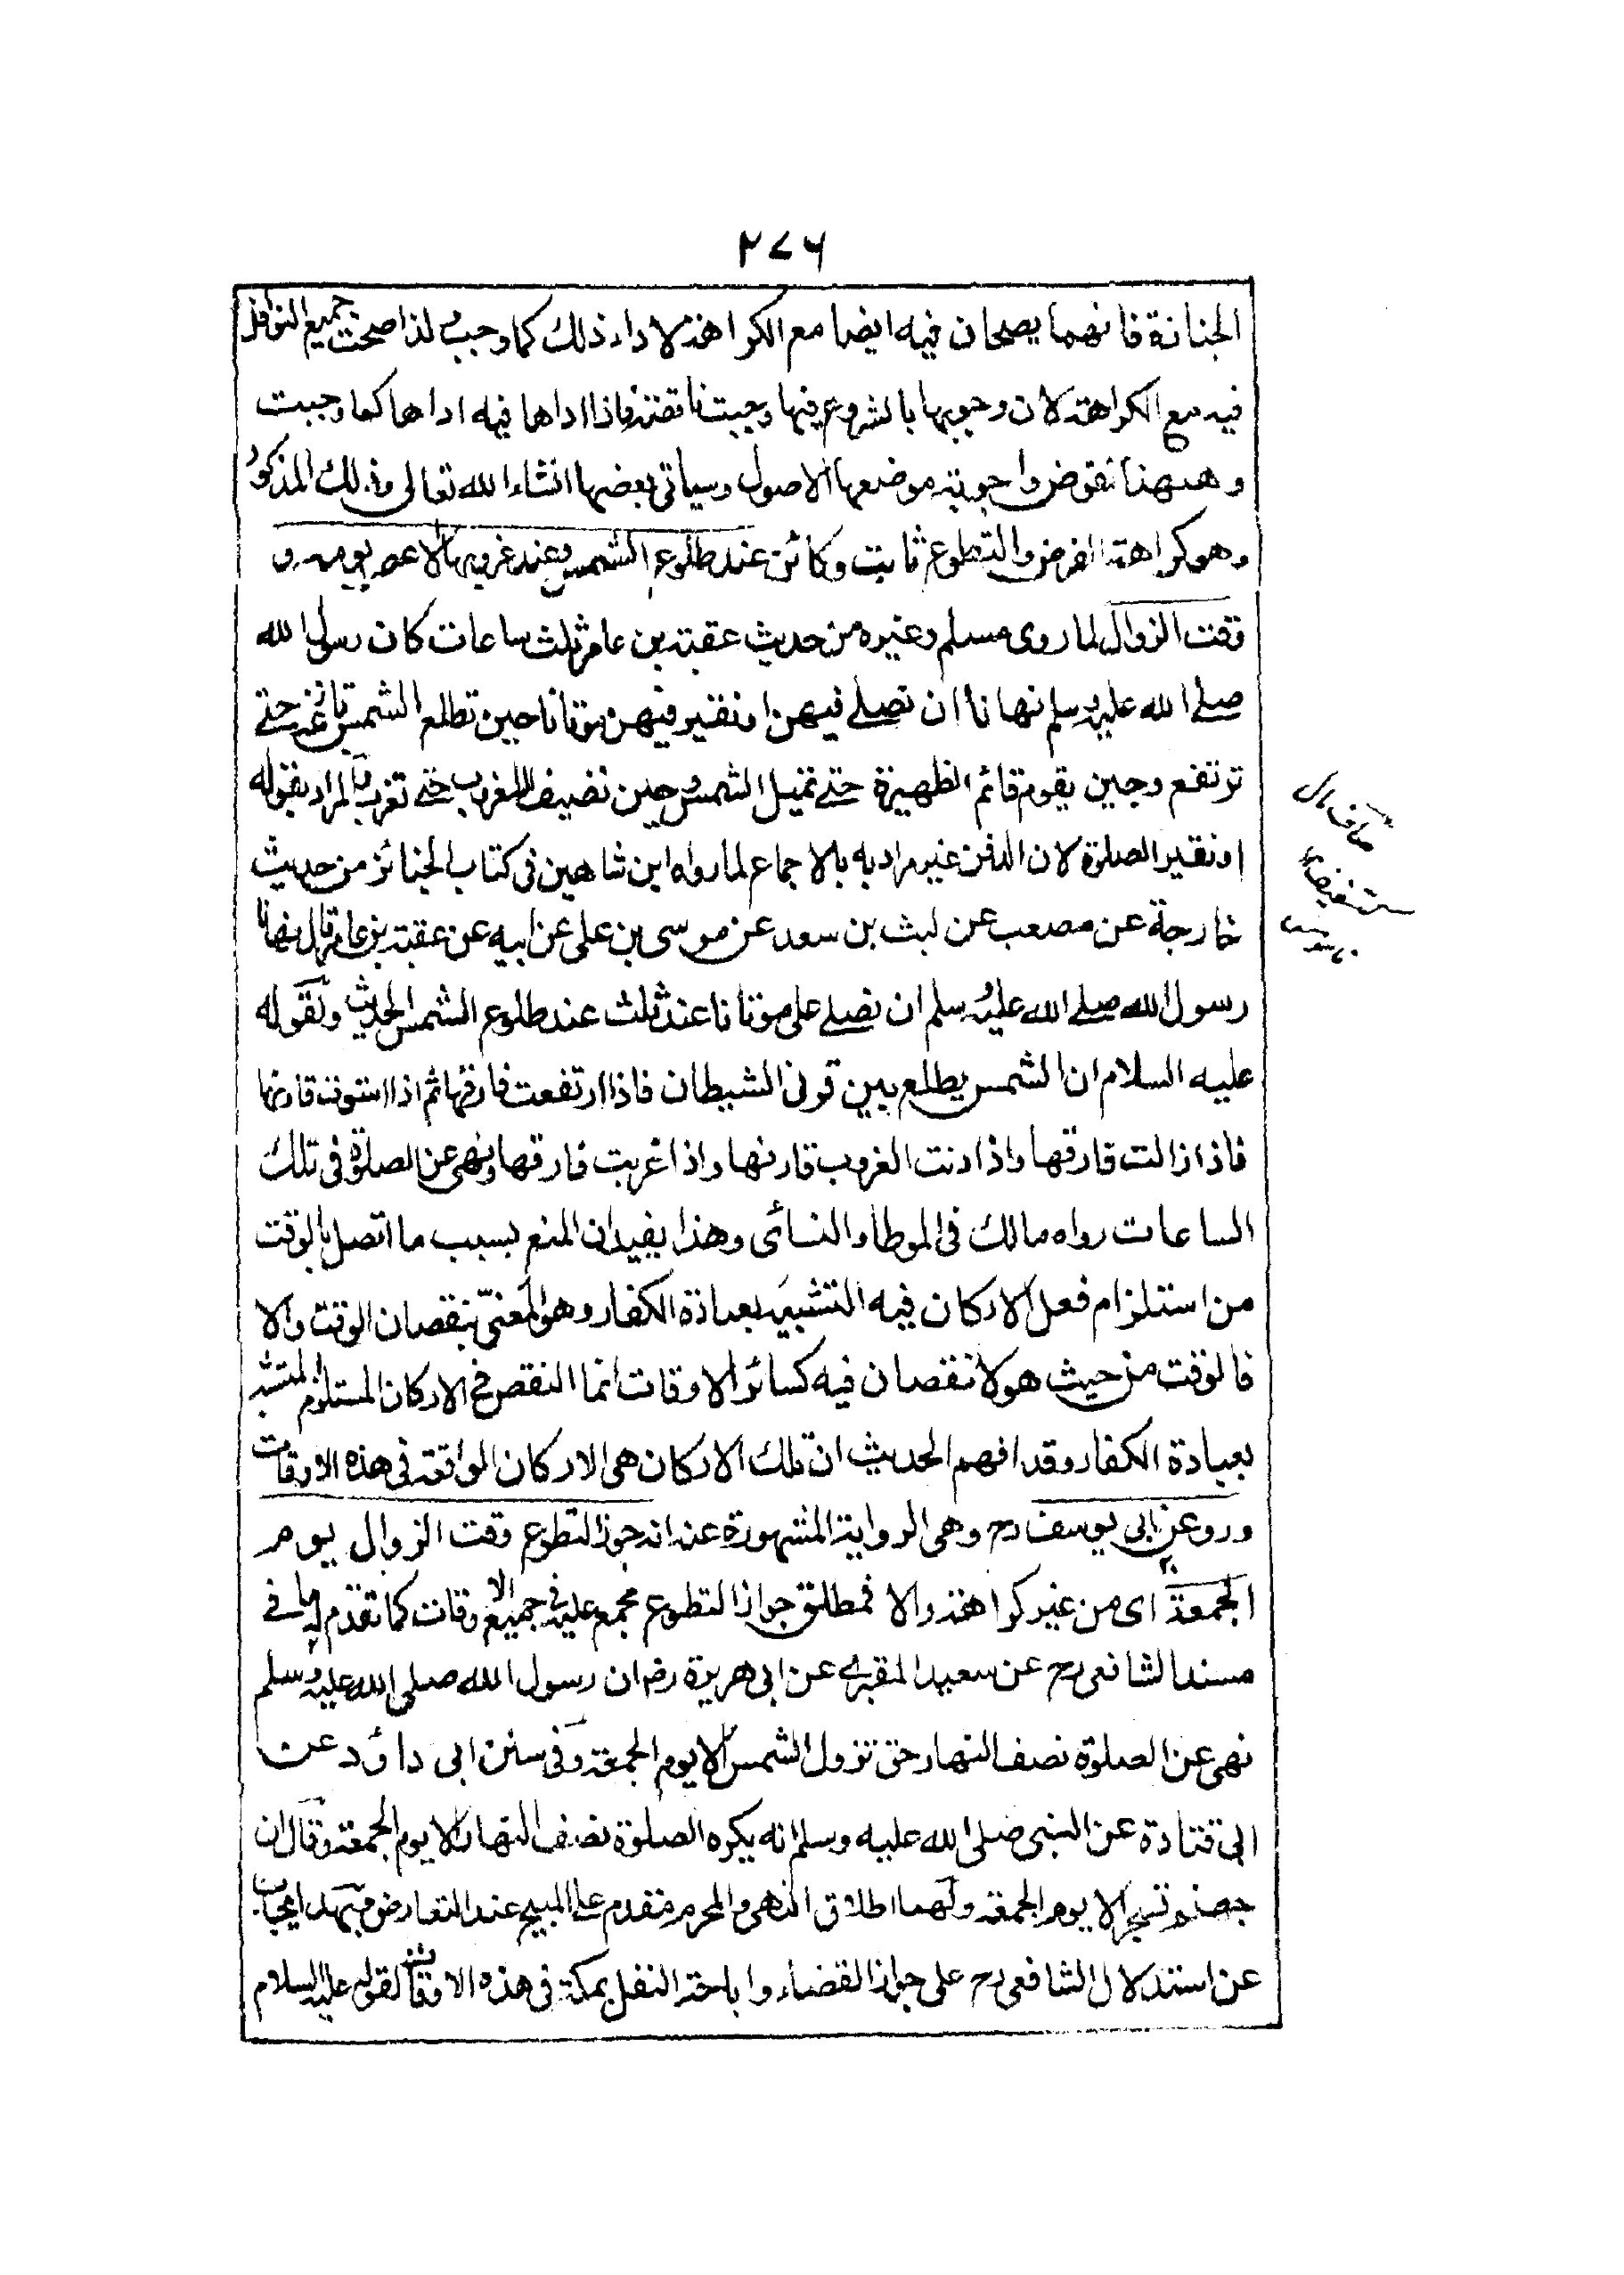 ٢٧٦
الجنازة فانهما يصحان فيه ايضا مع الكراهة لاداء ذلك كما وجب لذا صحت جميع النوافل
فيه مع الكراهة لان وجوبها بالشروع فيها وجبت ناقصة فاذا اداها فيه اداها كما وجبت
وههنا نقوض واجوبة موضعها الاصول وسياتى بعضها انشاء الله تعالى وذلك المذكور
وهو كراهة الفرض والتطوع ثابت وكائن عند طلوع الشمس وعند غروبها الا عصر يومه و
وقت الزوال لما روى مسلم وغيره من حديث عقبة بن عامر ثلث ساعات كان رسول الله
صلے الله عليه وسلم نهانا ان نصلے فيهن او نقبر فيهن موتانا حين تطلع الشمس بازغة حتے
ترتفع وحين يقوم قائم الظهيرة حتے تميل الشمس وحين تضيف للغروب حتے تغرب والمراد بقوله
او نقبر الصلوة لان الدفن غير مراد به بالاجماع لما رواه ابن شاهين فى كتاب الجنائز من حديث
خارجة عن مصعب عن ليث بن سعد عن موسى بن على عن ابيه عن عقبة بن عامر قال نهانا
رسول الله صلے الله عليه وسلم ان نصلے على موتانا عند ثلث عند طلوع الشمس الحديث ولقوله
عليه السلام ان الشمس يطلع بين قرنى الشيطان فاذا ارتفعت فارقها ثم اذا استوت قارنها
فاذا زالت فارقها واذا دنت الغروب قارنها واذا غربت فارقها ونهى عن الصلوة فى تلك
الساعات رواه مالك فى الموطا والنسائى وهذا يفيد ان المنع بسبب ما اتصل بالوقت
من استلزام فعل الاركان فيه التشبيه بعبادة الكفار وهو المعنىّ بنقصان الوقت والا
فالوقت من حيث هو لا نقصان فيه كسائر الاوقات انما النقص فى الاركان المستلزم للتشبه
بعبادة الكفار وقد افهم الحديث ان تلك الاركان هى الاركان الواقعة فى هذه الاوقات
وروى عن ابى يوسف رح وهى الرواية المشهورة عنه انه جوز التطوع وقت الزوال يوم
الجمعة اى من غير كراهة والا فمطلق جواز التطوع مجمع عليه فى جميع الاوقات كما تقدم له ما فے
مسند الشافعى رح عن سعيد المقبرے عن ابى هريرة رض ان رسول الله صلى الله عليه وسلم
نهى عن الصلوة نصف النهار حتى تزول الشمس الا يوم الجمعة وفى سنن ابى داؤد عن
ابى قتادة عن النبى صلى الله عليه وسلم انه يكره الصلوة نصف النهار الا يوم الجمعة وقال ان
جهنم تسجر الا يوم الجمعة ولهما اطلاق النهى والمحرم مقدم على المبيح عند التعارض وبهذا يجاب
عن استدلال الشافعى رح على جواز القضاء واباحة النفل بمكة فى هذه الاوقات لقوله عليه السلام